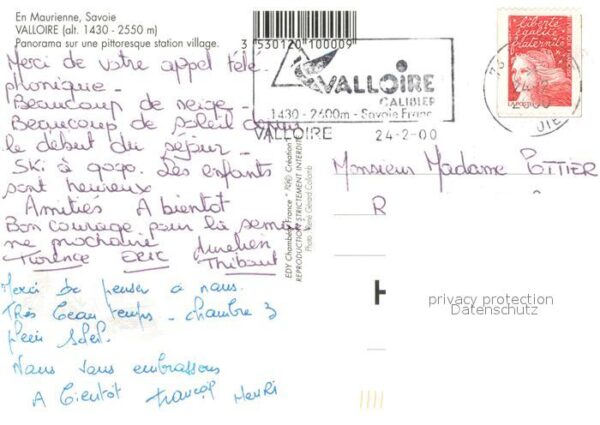 En Maurienne, Savoie
VALLOIRE (alt. 1430 - 2550 m)
Panorama sur une pittoresque station village.
Merci de votre appel télé-
phonique -
Beaucoup de neige -
Beaucoup de soleil depuis
le début du séjour -
Ski à gogo. Les enfants
sont heureux
Amitiés A bientôt
Bon courage pour la semai
ne prochaine Aurélien
Florence ERIC Thibaut
Merci de penser à nous.
Très beau temps - chambre 3
plein soleil.
Nous vous embrassons
A bientôt François Henri
3 530120 100009
VALLOIRE
GALIBIER
1430 - 2600m - Savoie Franc
VALLOIRE 24-2-00
liberté
égalité
fraternité
LA POSTE
24-2
2000
OIE
EDY Chambéry France - Création
REPRODUCTION STRICTEMENT INTERDITE
Photo : Pierre Gérard Colomb
Monsieur Madame POTTIER
R
H
privacy protection
Datenschutz